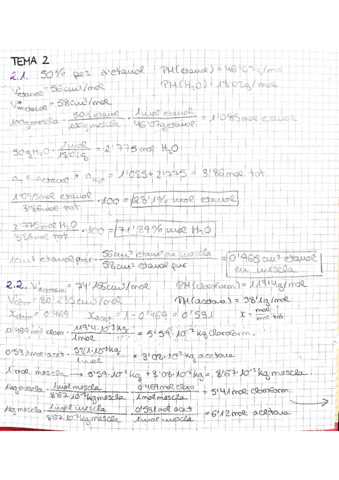 TEMA 2
2.1. 50% pes d'etanol PM(etanol) = 46'07g/mol
V etanol = 56cm³/mol PM(H₂O) = 18'02g/mol
V* = 58cm³/mol
100g mescla · 50g etanol / 100g mescla · 1mol etanol / 46'07g etanol = 1'085mol etanol
50g H₂O · 1mol / 18'02g = 2'775 mol H₂O
= 1'085 + 2'775 = 3'86 mol tot.
1'085mol etanol / 3'86 mol tot · 100 = 28'1% mol etanol
2'775 mol H₂O / 3'86 mol tot · 100 = 71'89% mol H₂O
1cm³ etanol pur · 56cm³ etanol en mescla / 58cm³ etanol pur = 0'965cm³ etanol en mescla
2.2. V acetona = 74'166cm³/mol PM(cloroform) = 119'4g/mol
= 80'235cm³/mol PM(acetona) = 58'1g/mol
= 0'469 = 1 - 0'469 = 0'531 x = mol / mol tot
0'469 mol cloro · 119'4·10⁻³kg / 1mol = 5'59·10⁻² kg cloroform
0'531 mol acet · 58'1·10⁻³kg / 1mol = 3'08·10⁻² kg acetona
1 mol mescla → 5'59·10⁻² kg + 3'08·10⁻² kg = 8'67·10⁻² kg mescla
1kg mescla · 1mol mescla / 8'67·10⁻² kg mescla · 0'469 mol cloro / 1mol mescla = 5'41 mol cloroform
1kg mescla · 1mol mescla / 8'67·10⁻² kg mescla · 0'531 mol acet / 1mol mescla = 6'12 mol acetona